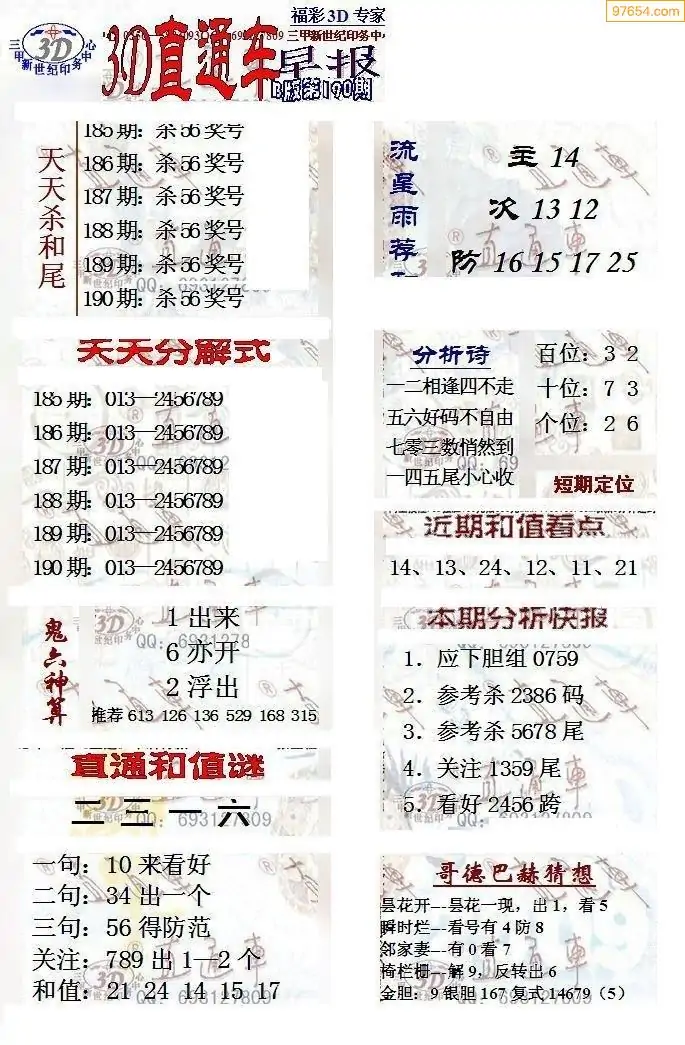 97654.com
福彩 3D 专家
三甲新世纪印务中心
3D
3D直通车
早报
E版第190期
天天杀和尾
185 期：杀 56 奖号
186 期：杀 56 奖号
187 期：杀 56 奖号
188 期：杀 56 奖号
189 期：杀 56 奖号
190 期：杀 56 奖号
流星雨荐
主 14
次 13 12
防 16 15 17 25
天天分解式
185 期：013—2456789
186 期：013—2456789
187 期：013—2456789
188 期：013—2456789
189 期：013—2456789
190 期：013—2456789
分析诗
一二相逢四不走
五六好码不自由
七零三数悄然到
一四五尾小心收
百位：3 2
十位：7 3
个位：2 6
短期定位
近期和值看点
14、13、24、12、11、21
鬼六神算
1 出来
6 亦开
2 浮出
推荐 613 126 136 529 168 315
本期分析快报
1．应下胆组 0759
2．参考杀 2386 码
3．参考杀 5678 尾
4．关注 1359 尾
5．看好 2456 跨
直通和值谜
二三一六
一句：10 来看好
二句：34 出一个
三句：56 得防范
关注：789 出 1—2 个
和值：21 24 14 15 17
哥德巴赫猜想
昙花开---昙花一现，出 1，看 5
瞬时烂---看号有 4 防 8
邻家妻---有 0 看 7
椅栏栅---解 9，反转出 6
金胆：9 银胆 167 复式 14679（5）